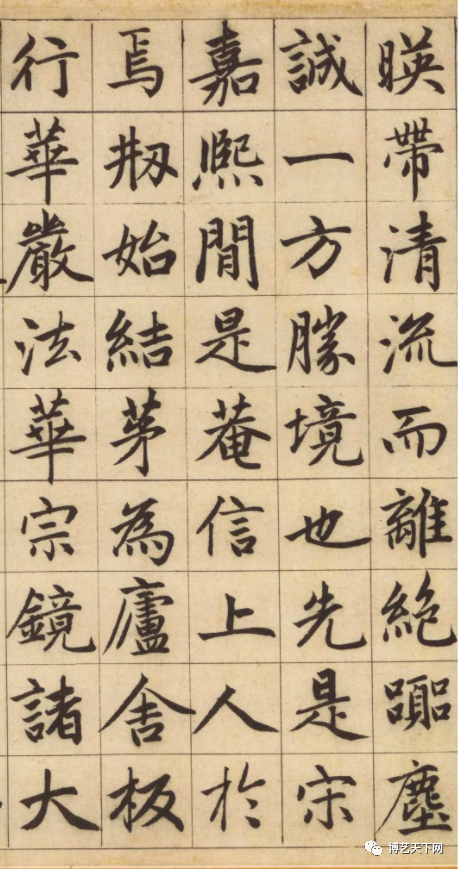 暎帶清流而離絶嚻塵
誠一方勝境也先是宋
嘉熙閒是菴信上人於
焉剏始結茅為廬舍板
行華嚴法華宗鏡諸大
博艺天下网